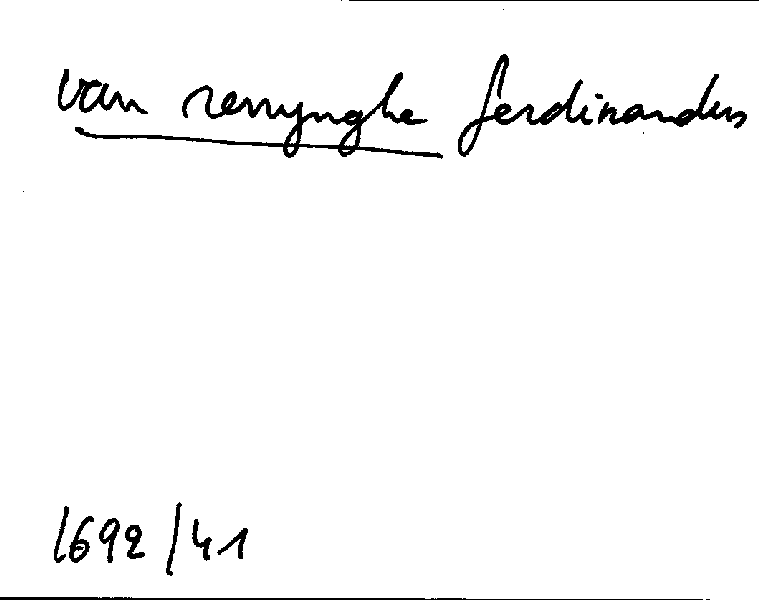 van renynghe ferdinandus
1692/41